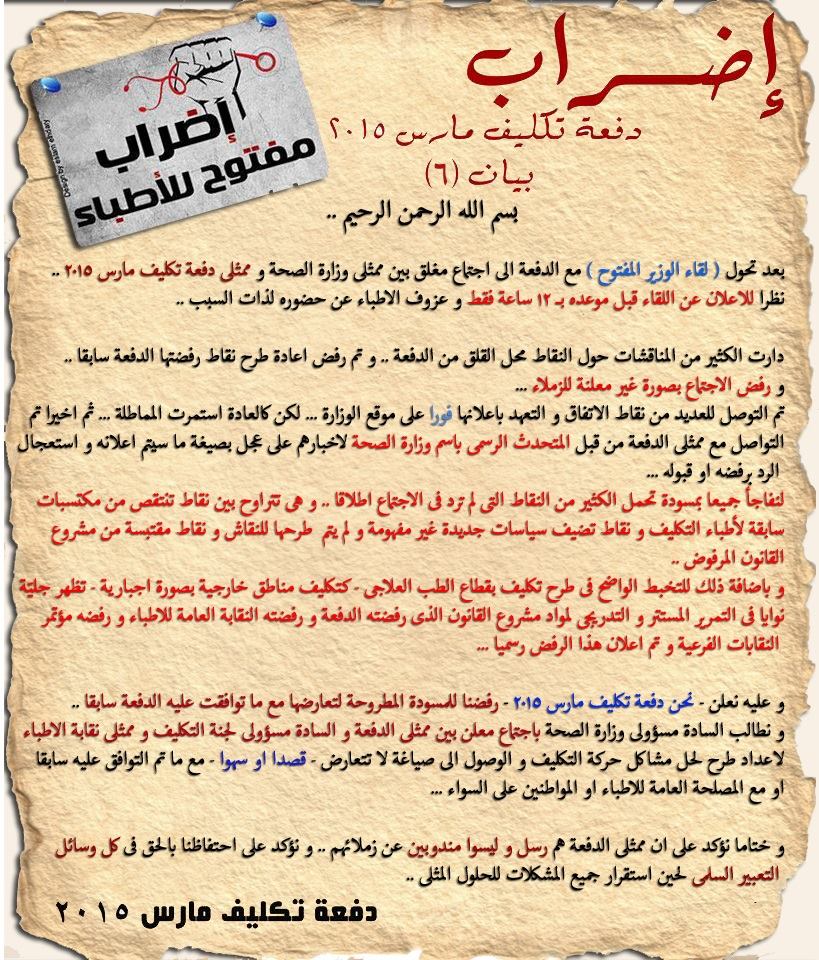 إضراب
دفعة تكليف مارس ٢٠١٥
بيان (٦)
إضراب
مفتوح للأطباء
Design by eslam elhdary
بسم الله الرحمن الرحيم ..
بعد تحول ( لقاء الوزير المفتوح ) مع الدفعة الى اجتماع مغلق بين ممثلى وزارة الصحة و ممثلى دفعة تكليف مارس ٢٠١٥ ..
نظرا للاعلان عن اللقاء قبل موعده بـ ١٢ ساعة فقط و عزوف الاطباء عن حضوره لذات السبب ..
دارت الكثير من المناقشات حول النقاط محل القلق من الدفعة .. و تم رفض اعادة طرح نقاط رفضتها الدفعة سابقا ..
و رفض الاجتماع بصورة غير معلنة للزملاء ...
تم التوصل للعديد من نقاط الاتفاق و التعهد باعلانها فورا على موقع الوزارة ... لكن كالعادة استمرت المماطلة ... ثم اخيرا تم
التواصل مع ممثلى الدفعة من قبل المتحدث الرسمى باسم وزارة الصحة لاخبارهم على عجل بصيغة ما سيتم اعلانه و استعجال
الرد برفضه او قبوله ...
لنفاجأ جميعا بمسودة تحمل الكثير من النقاط التى لم ترد فى الاجتماع اطلاقا .. و هى تتراوح بين نقاط تنتقص من مكتسبات
سابقة لأطباء التكليف و نقاط تضيف سياسات جديدة غير مفهومة و لم يتم طرحها للنقاش و نقاط مقتبسة من مشروع
القانون المرفوض ..
و باضافة ذلك للتخبط الواضح فى طرح تكليف بقطاع الطب العلاجي - كتكليف مناطق خارجية بصورة اجبارية - تظهر جليّة
نوايا فى التمرير المستتر و التدريجى لمواد مشروع القانون الذى رفضته الدفعة و رفضته النقابة العامة للاطباء و رفضه مؤتمر
النقابات الفرعية و تم اعلان هذا الرفض رسميا ...
و عليه نعلن - نحن دفعة تكليف مارس ٢٠١٥ - رفضنا للمسودة المطروحة لتعارضها مع ما توافقت عليه الدفعة سابقا ..
و نطالب السادة مسؤولى وزارة الصحة باجتماع معلن بين ممثلى الدفعة و السادة مسؤولى لجنة التكليف و ممثلى نقابة الاطباء
لاعداد طرح لحل مشاكل حركة التكليف و الوصول الى صياغة لا تتعارض - قصدا او سهوا - مع ما تم التوافق عليه سابقا
او مع المصلحة العامة للاطباء او المواطنين على السواء ...
و ختاما نؤكد على ان ممثلى الدفعة هم رسل و ليسوا مندوبين عن زملائهم .. و نؤكد على احتفاظنا بالحق فى كل وسائل
التعبير السلمى لحين استقرار جميع المشكلات للحلول المثلى ..
دفعة تكليف مارس ٢٠١٥